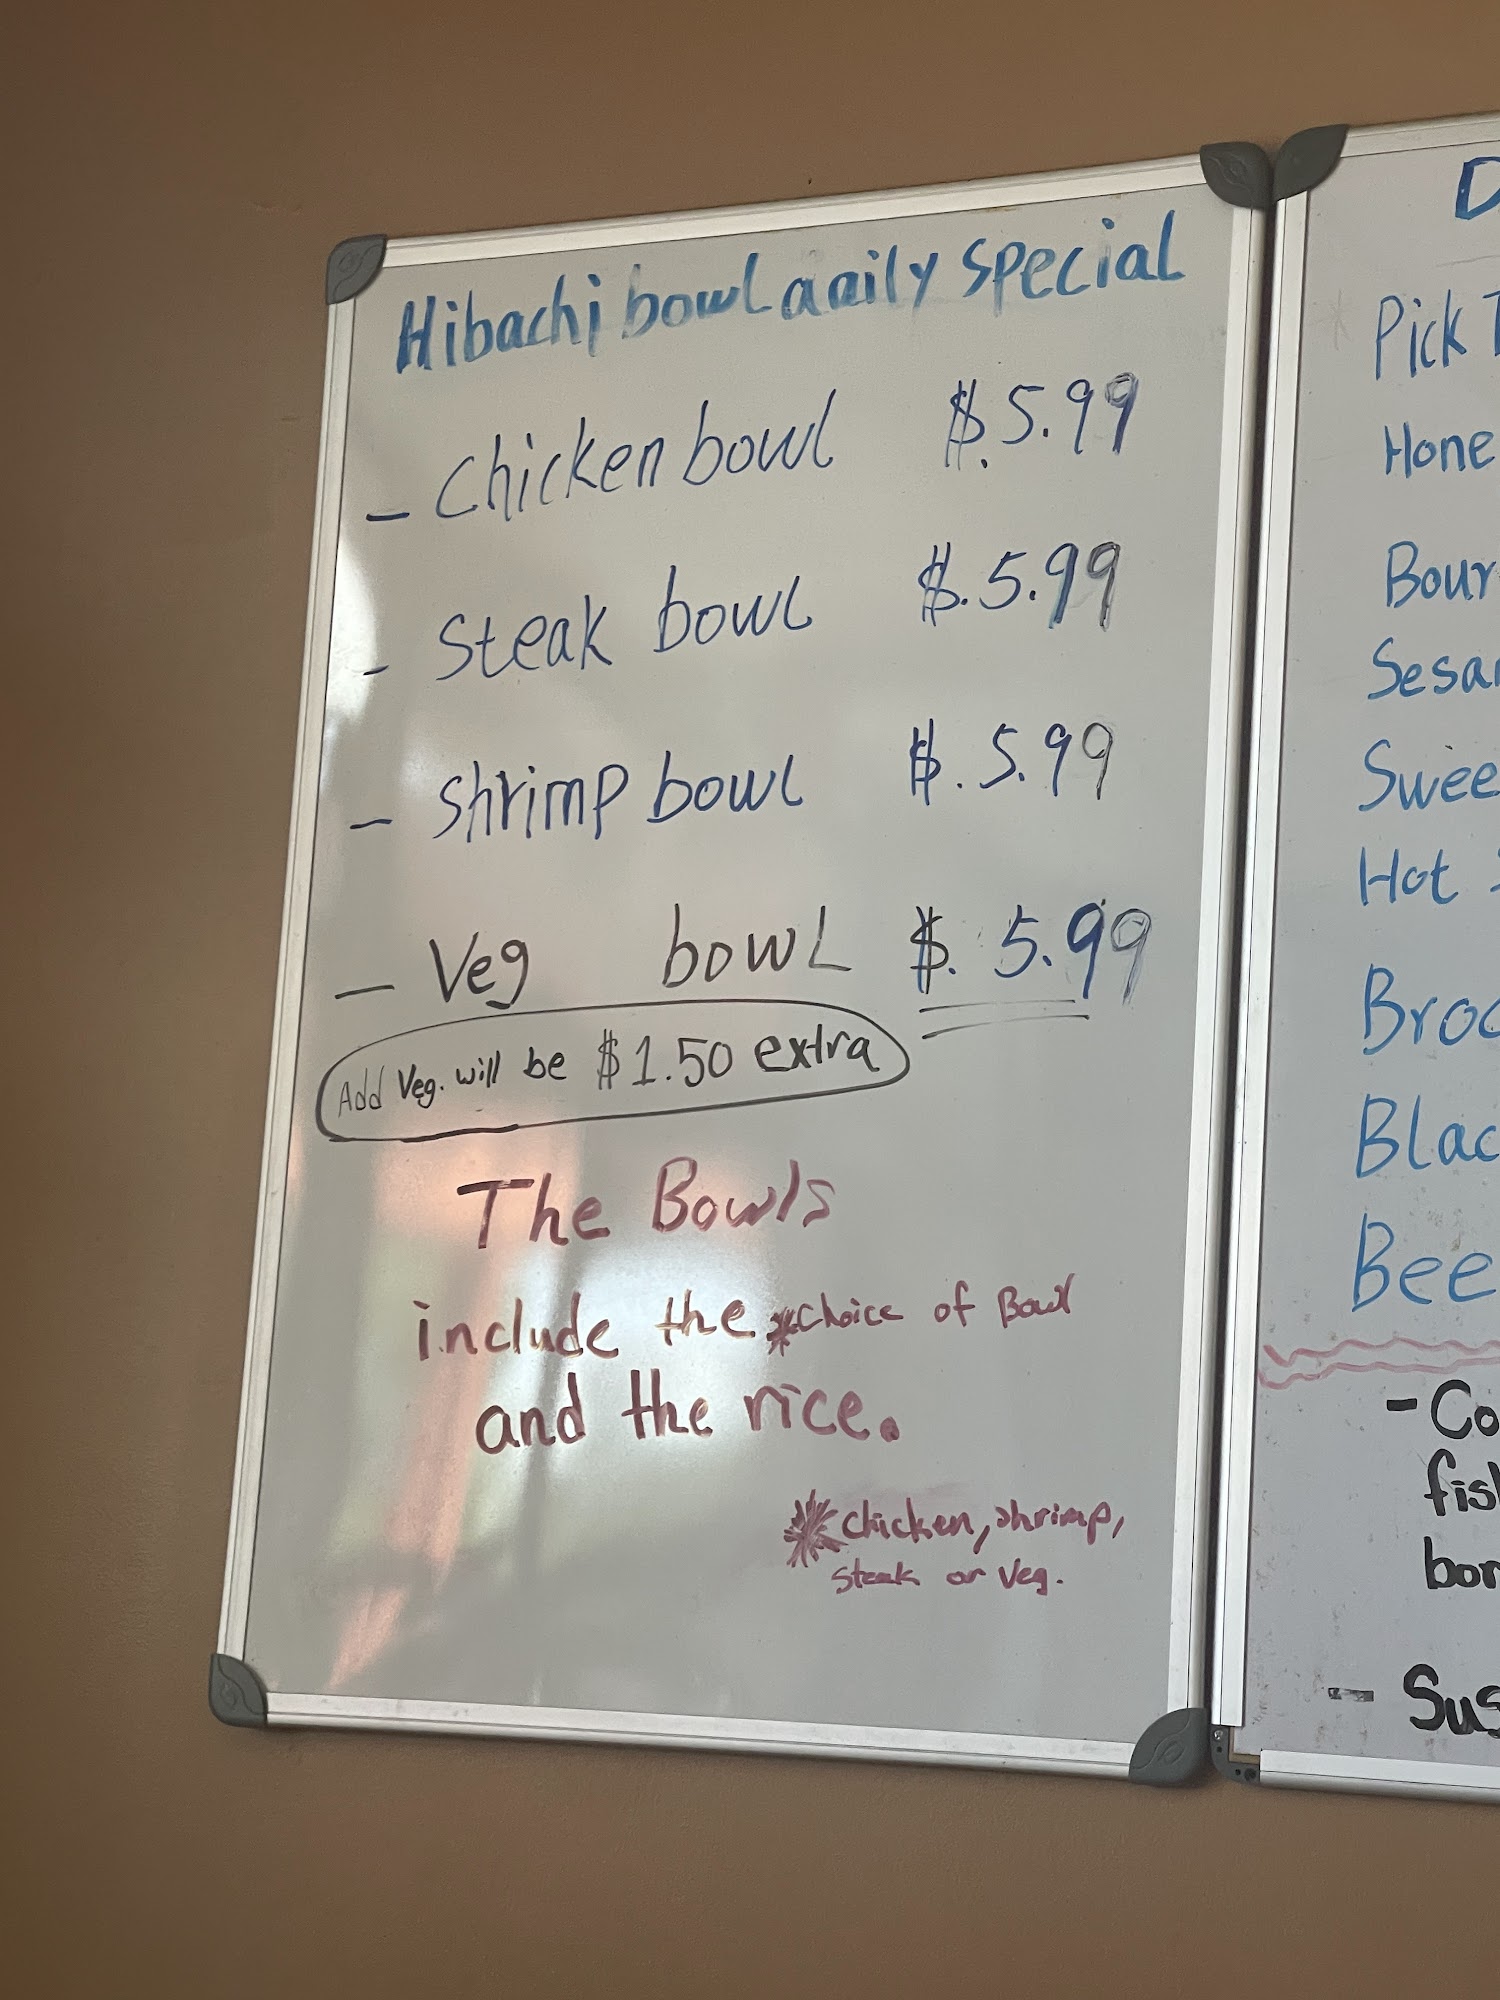 Hibachi bowl daily special
- Chicken bowl $.5.99
- Steak bowl $.5.99
- Shrimp bowl $.5.99
- Veg bowl $.5.99
Add Veg. will be $1.50 extra
The Bowls
include the *choice of Bowl
and the rice.
*chicken, shrimp,
steak or Veg.
D
Pick T
Hone
Bour
Sesa
Swee
Hot S
Broc
Blac
Bee
- Co
fis
bo
- Sus